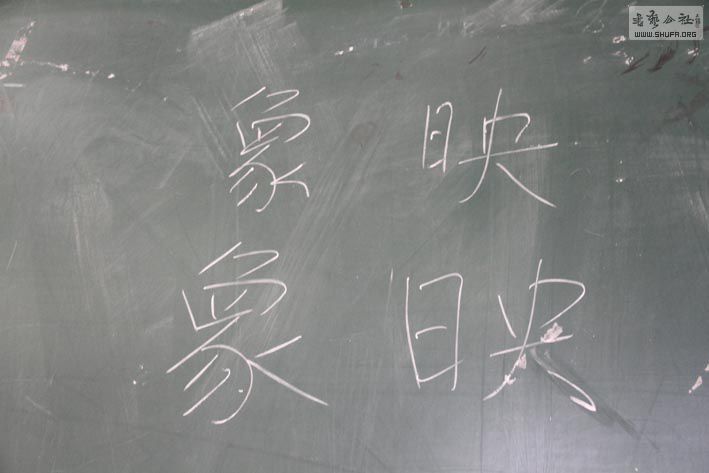 書藝公社
WWW.SHUFA.ORG
象 映
象 映